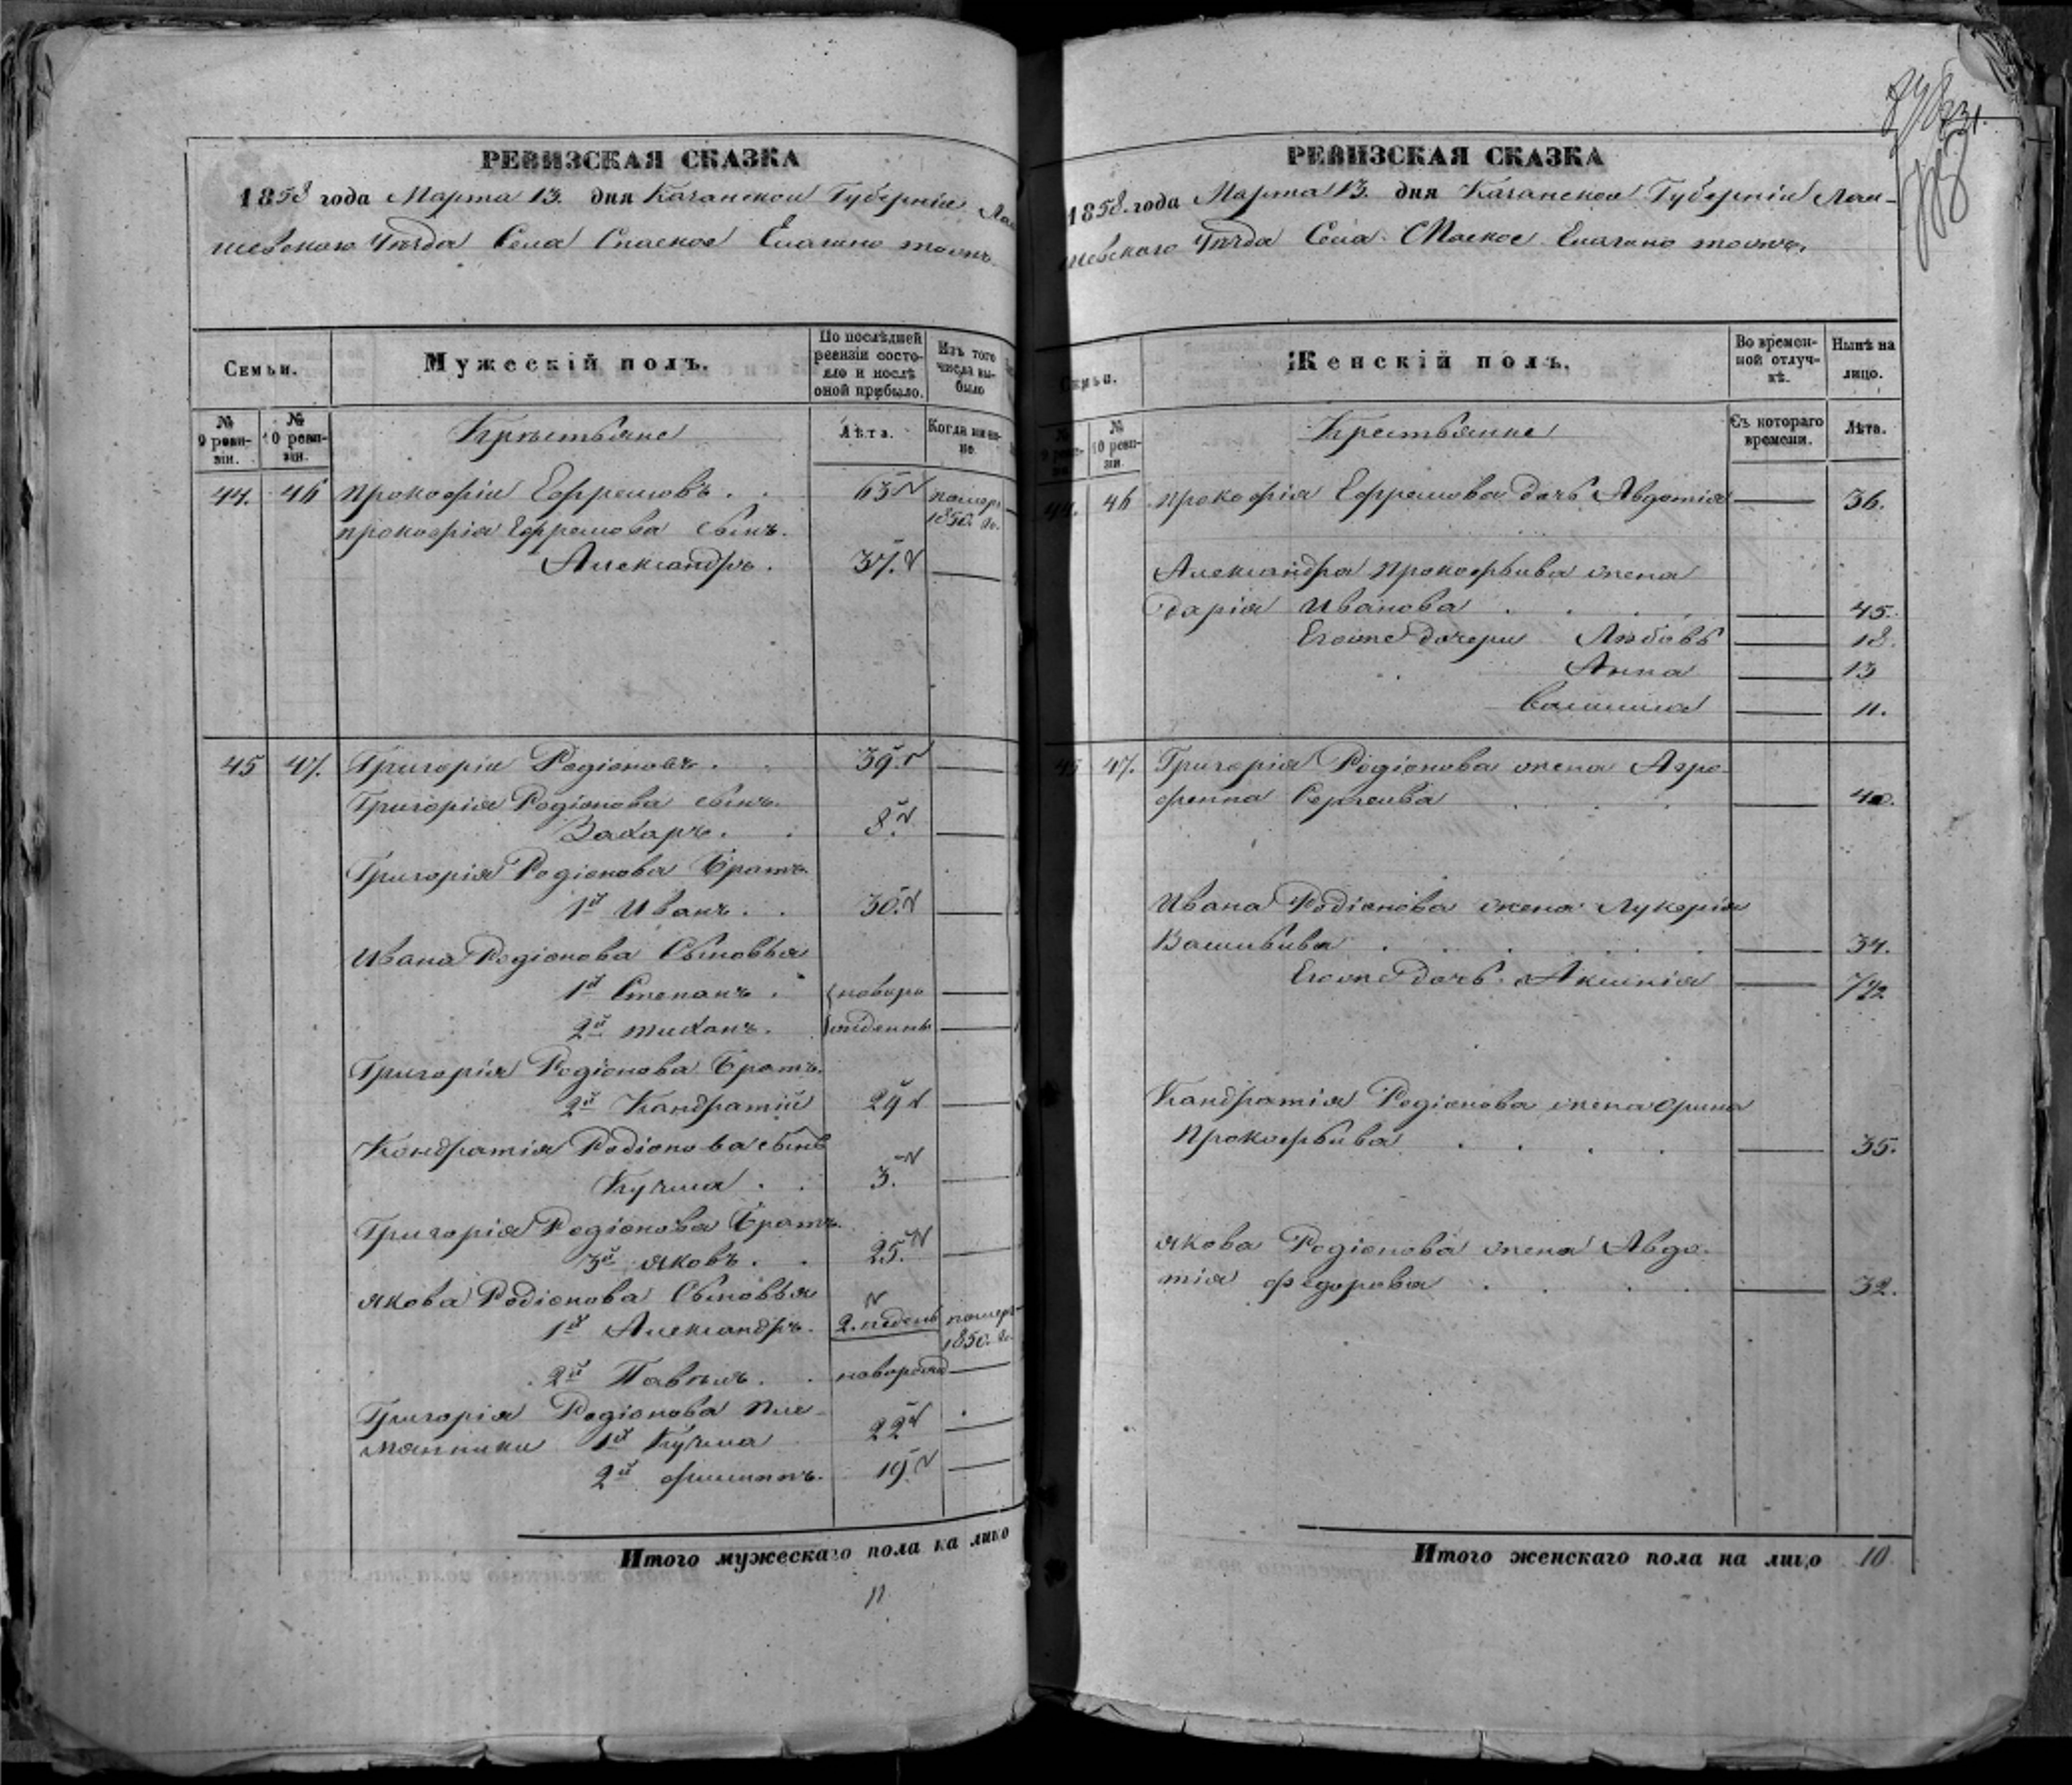 РЕВИЗСКАЯ СКАЗКА
1858 года Марта 13. дня Казанской Губерніи Лаи-
шевскаго Уѣзда Села Спаское Елагино тожъ
Семьи.
Мужескій полъ.
По послѣдней ревизіи состо-
яло и послѣ оной прибыло.
Изъ того числа вы-
было
№ 9 реви-
зіи.
№ 10 реви-
зіи.
Крѣстьяне
Лѣта.
Когда имен-
но.
44. 46 Прокофій Ефремовъ. 63 померъ
1850. го.
Прокофія Ефремова сынъ.
Александръ. 37.
45 47. Григорій Родіоновъ. 39.
Григорія Родіонова сынъ.
Захаръ. 8.
Григорія Родіонова Братъ
1й Иванъ. 30.
Ивана Родіонова Сыновья
1й Степанъ. новоро
2й Тихонъ. жденны
Григорія Родіонова Братъ.
2й Кандратій 29
Кондратія Родіонова сынъ
Кузма. 3.
Григорія Родіонова Братъ.
3й Яковъ. 25.
Якова Родіонова Сыновья
1й Александръ. 2. недель померъ
1850. го.
2й Павелъ. новорожд
Григорія Родіонова Пле-
мянники 1й Кузма 22
2й Филипъ. 19.
Итого мужескаго пола на лицо
11
РЕВИЗСКАЯ СКАЗКА
1858. года Марта 13. дня Казанской Губерніи Лаи-
шевскаго Уѣзда Села Спаское Елагино тожъ.
Семьи.
Женскій полъ.
Во времен-
ной отлуч-
кѣ.
Нынѣ на лицо.
№ 9 реви-
зіи.
№ 10 реви-
зіи.
Крестьянне
Съ котораго времени.
Лѣта.
44. 46 Прокофія Ефремова дочь Авдотія 36.
Александра Прокофьива жена
Дарія Иванова 45.
Егоже Дочери Любовь 18.
Анна 13
11.
45 47. Григорія Родіонова жена Агро-
фенна Сергеива 40.
Ивана Родіонова жена Лукерія
Васильива 34.
Егоже Дочь Аксинія 7 1/2
Кандратія Родіонова жена Орина
Прокофьива 35.
Якова Родіонова жена Авдо-
тія Федорова 32.
Итого женскаго пола на лицо 10